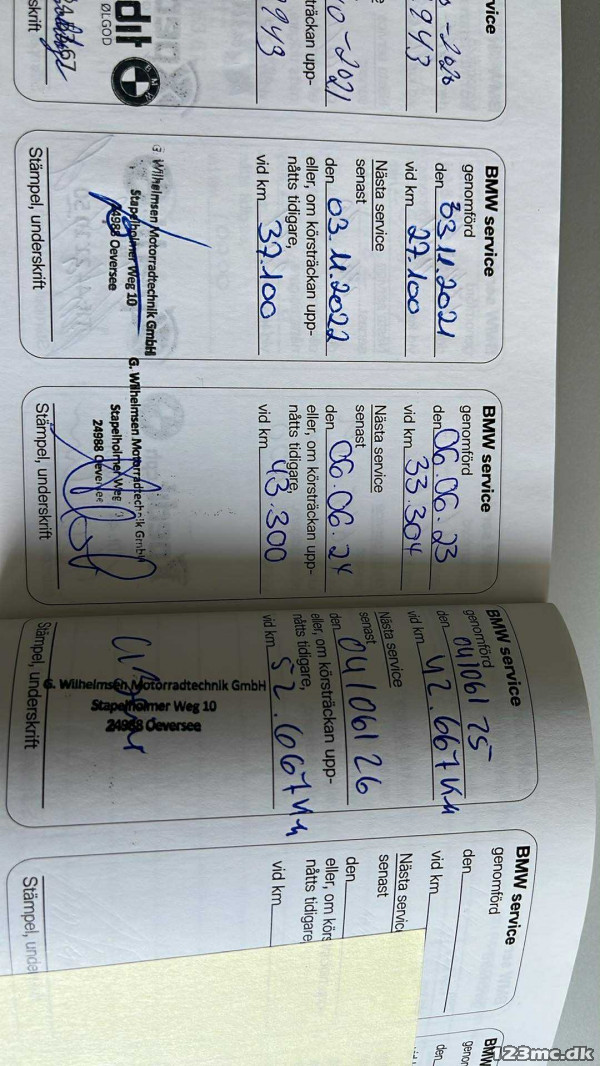 vice
-2020
943
e
sträckan upp-
10-2021
943
dit
ØLGOD
BMW
skrift
BMW service
genomförd
den 03.11.2021
vid km 27.100
Nästa service
senast
den 03.11.2022
eller, om körsträckan upp-
nåtts tidigare,
vid km 37.100
G. Wilhelmsen Motorradtechnik GmbH
Stapelholmer Weg 10
24988 Oeversee
Stämpel, underskrift
BMW service
genomförd
den 06.06.23
vid km 33.304
Nästa service
senast
den 06.06.24
eller, om körsträckan upp-
nåtts tidigare,
vid km 43.300
G. Wilhelmsen Motorradtechnik GmbH
Stapelholmer Weg
24988 Oeversee
Stämpel, underskrift
BMW service
genomförd
den 04/06/25
vid km 42.667 km
Nästa service
senast
den 04/06/26
eller, om körsträckan upp-
nåtts tidigare,
vid km 52.667 km
G. Wilhelmsen Motorradtechnik GmbH
Stapelholmer Weg 10
24988 Oeversee
Stämpel, underskrift
BMW service
genomförd
den
vid km
Nästa servic
senast
den
eller, om körs
nåtts tidigare
vid km
Stämpel, unde
BMW
genon
den
vid
123mc.dk